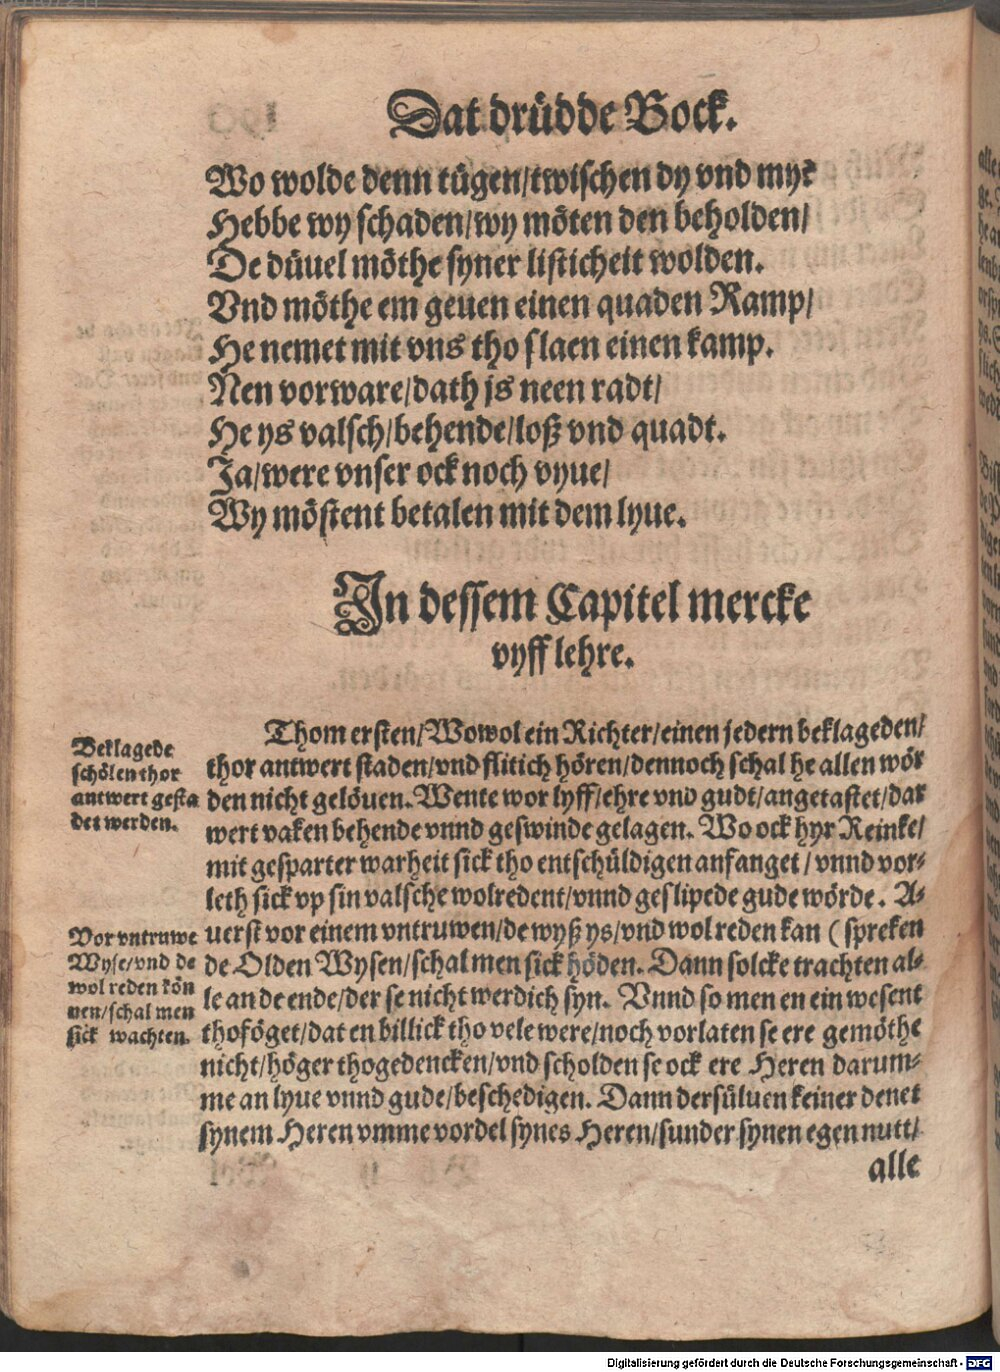 Dat drüdde Bock.
Wo wolde denn tügen/twischen dy vnd my?
Hebbe wy schaden/wy möten den beholden/
De düuel möthe syner listicheit wolden.
Vnd möthe em geuen einen quaden Ramp/
He nemet mit vns tho slaen einen kamp.
Nen vorware/dath js neen radt/
He ys valsch/behende/loß vnd quadt.
Ja/were vnser ock noch vyue/
Wy möstent betalen mit dem lyue.
In dessem Capitel mercke
vyff lehre.
Thom ersten/Wowol ein Richter/einen jedern beklageden/
thor antwert staden/vnd flitich hören/dennoch schal he allen wör
den nicht gelöuen. Wente wor lyff/ehre vnd gudt/angetastet/dar
wert vaken behende vnnd geswinde gelagen. Wo ock hyr Reinke/
mit gesparter warheit sick tho entschüldigen anfanget/vnnd vor-
leth sick vp sin valsche wolredent/vnnd geslipede gude wörde. A-
uerst vor einem vntruwen/de wyß ys/vnd wol reden kan (spreken
de Olden Wysen/schal men sick höden. Dann solcke trachten al-
le an de ende/der se nicht werdich syn. Vnnd so men en ein wesent
thoföget/dat en billick tho vele were/noch vorlaten se ere gemöthe
nicht/höger thogedencken/vnd scholden se ock ere Heren darum-
me an lyue vnnd gude/beschedigen. Dann dersüluen keiner denet
synem Heren vmme vordel synes Heren/sunder synen egen nutt/
alle
Beklagede
schölen thor
antwert gesta
det werden.
Vor vntruwe
Wyse/vnd de
wol reden kön
nen/schal men
sick wachten.
Digitalisierung gefördert durch die Deutsche Forschungsgemeinschaft - DFG